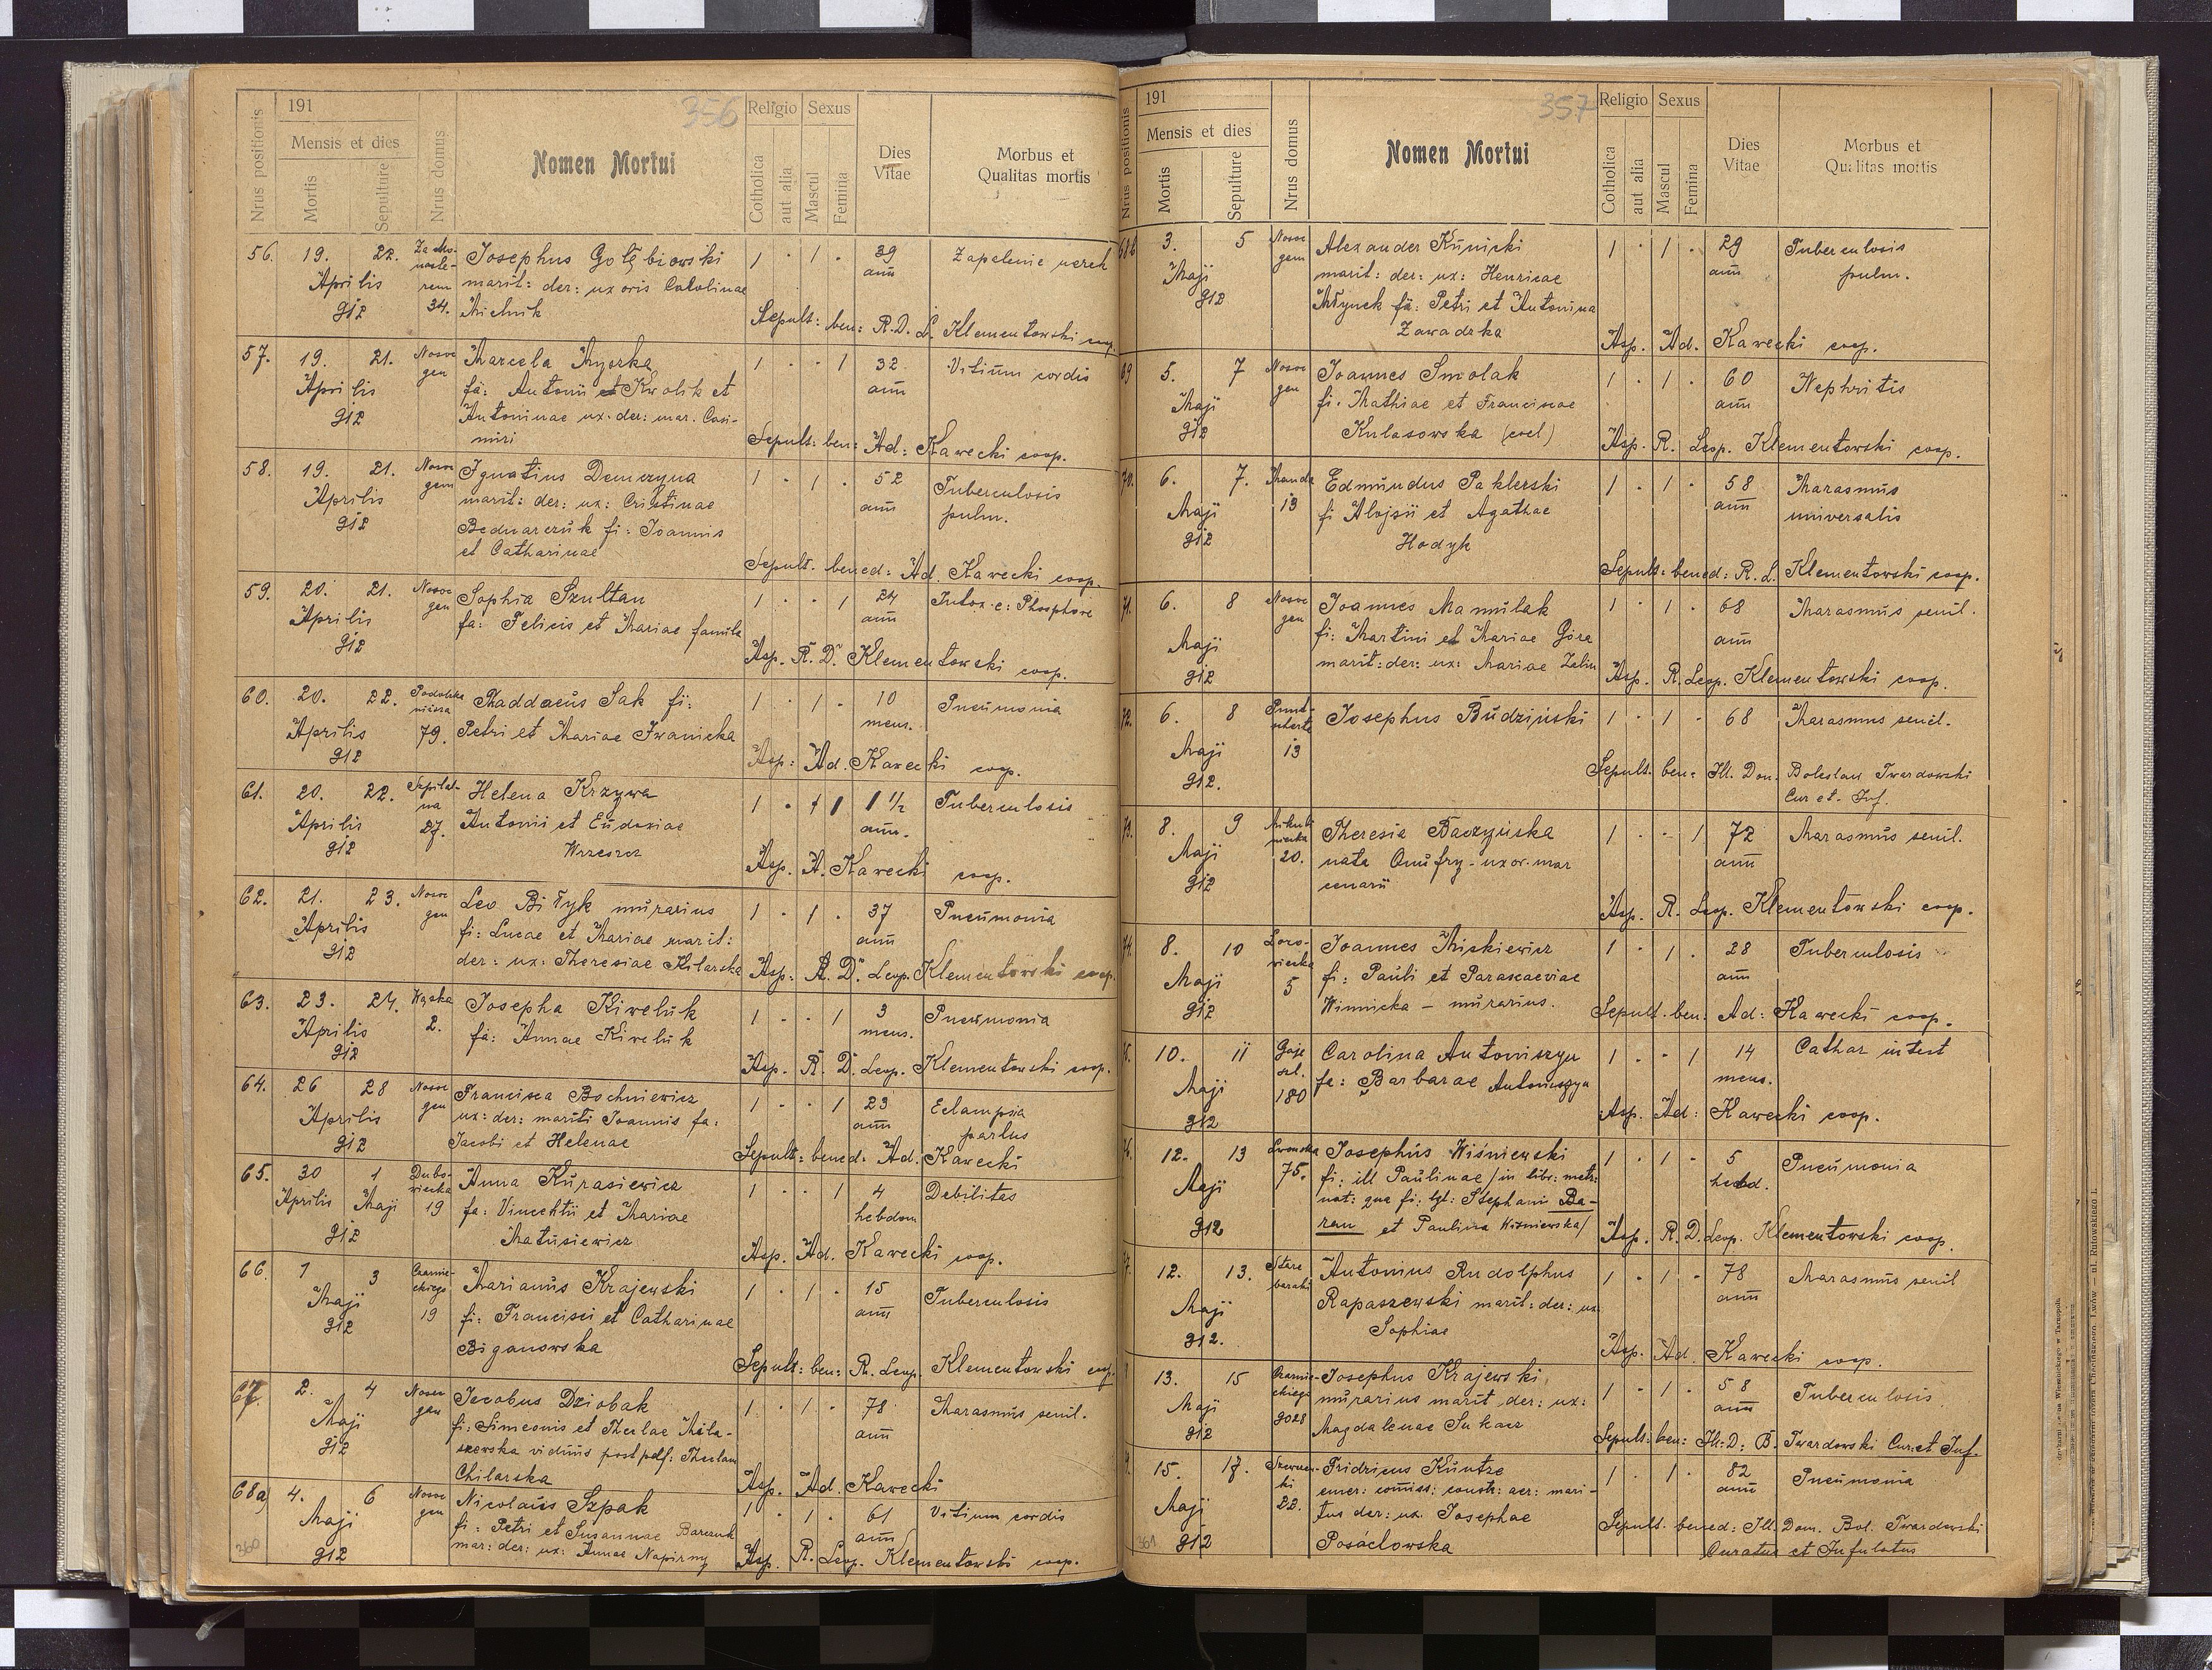 356
191
Mensis et dies
Nrus positionis
Mortis
Sepulture
Nrus domus
Nomen Mortui
Religio
Sexus
Cotholica
aut alia
Mascul
Femina
Dies Vitae
Morbus et
Qualitas mortis
56. 19. 22. Josephus Gołębiowski 1 · 1 · 39 Zapalenie nerek
Aprilis marit: der: uxoris Carolinae ann
912 34. Michnik Sepult: ben: R.D. L. Klementowski coop.
57. 19. 21. Novo Marcela Myszka 1 · · 1 32 Vitium cordis
Aprilis gen fa: Antonii et Krolik et ann
912 Antoninae ux. der: mar. Casi-
miri Sepult: ben: Ad: Kawecki coop.
58. 19. 21. Novo Ignatius Demczyna 1 · 1 · 52 Tuberculosis
Aprilis gen marit: der: ux: Cristinae ann pulm.
912 Bednarczuk fi: Joannis
et Catharinae Sepult. bened: Ad. Kawecki coop.
59. 20. 21. Novo Sophia Szultan 1 · · 1 24 Intox. c: Phosphore
Aprilis gen fa: Felicis et Mariae famula ann
912 Asp. R. D. Klementowski coop.
60. 20. 22. Thaddaeus Sak fi: 1 · 1 · 10 Pneumonia
Aprilis 79. Petri et Mariae Iwanicka mens.
912 Asp: Ad. Kawecki coop.
61. 20. 22. Szpital- Helena Krzywa 1 · 1 1 1/2 Tuberculosis
Aprilis na Antonii et Eudoxiae ann.
912 27. Wrzeszcz Asp. A. Kawecki coop.
62. 21. 23. Novo Leo Biłyk murarius 1 · 1 · 37 Pneumonia
Aprilis gen fi: Lucae et Mariae marit: ann
912 der: ux: Theresiae Kilarska Asp. R. D. Leop. Klementowski coop.
63. 23. 24. Wąska Josepha Kiweluk 1 · · 1 3 Pneumonia
Aprilis 2. fa: Annae Kiweluk mens.
912 Asp. R. D. Leop. Klementowski coop.
64. 26 28 Novo Francisca Bochniewicz 1 · · 1 23 Eclampsia
Aprilis gen ux: der: mariti Joannis fa: ann partus
912 Jacobi et Helenae Sepult: bened: Ad. Kawecki
65. 30 1 Dubo- Anna Kurasiewicz 1 · · 1 4 Debilitas
Aprilis Maji wiecka 19 fa: Vincentii et Mariae hebdom
912 Matusiewicz Asp. Ad. Kawecki coop.
66. 1 3 Czarnie- Marianus Krajewski 1 · 1 · 15 Tuberculosis
Maji ckiego fi: Francisci et Catharinae ann
912 19 Biganowska Sepult: ben: R. Leop. Klementowski coop.
67. 2. 4 Novo Jacobus Dziobak 1 · 1 · 78 Marasmus senil.
Maji gen fi: Simeonis et Theclae Mila- ann
912 szewska viduus post Theclam
Chilarska Asp. Ad. Kawecki
68a) 4. 6 Novo Nicolaus Szpak 1 · 1 · 61 Vitium cordis
Maji gen fi: Petri et Susannae Barczuk ann
912 mar: der: ux: Annae Napirny Asp. R. Leop. Klementowski coop.
360
357
191
Mensis et dies
Nrus positionis
Mortis
Sepulture
Nrus domus
Nomen Mortui
Religio
Sexus
Cotholica
aut alia
Mascul
Femina
Dies Vitae
Morbus et
Qualitas mortis
68b 3. 5 Novo Alexander Kunicki 1 · 1 · 29 Tuberculosis
Maji gen marit: der: ux: Henricae ann pulm.
912 Młynek fi: Petri et Antonina
Zawadzka Asp. Ad. Kawecki coop.
69 5. 7 Novo Joannes Smolak 1 · 1 · 60 Nephritis
Maji gen fi. Mathiae et Franciscae ann
912 Kulasowska (coel) Asp. R. Leop. Klementowski coop.
70. 6. 7. Edmundus Paklerski 1 · 1 · 58 Marasmus
Maji 13 fi Alojsii et Agathae ann universalis
912 Hodyk
Sepult: bened: R. L. Klementowski coop.
71. 6. 8 Novo Joannes Mamulak 1 · 1 · 68 Marasmus senil.
Maji gen fi: Martini et Mariae Góra ann
912 marit: der: ux: Mariae Asp. R. Leop. Klementowski coop.
72. 6. 8 Josephus Budziński 1 · 1 · 68 Marasmus senil.
Maji 13
912. Sepult. ben: Ill. Dom. Boleslaus Twardowski
Cur et. Inf.
73. 8. 9 Mikuli- Theresia Baczyńska 1 · · 1 72 Marasmus senil.
Maji niecka nata Onufry - uxor. mar ann
912 20. cenarii
Asp. R. Leop. Klementowski coop.
74. 8. 10 Joannes Miskiewicz 1 · 1 · 28 Tuberculosis
Maji 5 fi: Pauli et Parascaeviae ann
912 Winnicka - murarius. Sepult. ben: Ad: Kawecki coop.
75. 10. 11 Gaje Carolina Antoniszyn 1 · · 1 14 Cathar intest
Maji 180 fa: Barbarae Antoniszyn mens.
912 Asp. Ad: Kawecki coop.
12. 13 Lwowska Josephus Wiśniewski 1 · 1 · 5 Pneumonia
Maji 75. fi: ill Paulinae /in libr: metr: hebd.
912 nat: qua fi: lgt: Stephani Ba-
ran et Paulina Wiśniewska/ Asp. R. D. Leop. Klementowski coop.
12. 13. Stare Antonius Rudolphus 1 · 1 · 78 Marasmus senil
Maji baraki Rapaszewski marit: der: ux. ann
912. Sophiae
Asp. Ad. Kawecki coop.
13. 15 Czarnie- Josephus Krajewski 1 · 1 · 58 Tuberculosis
Maji ckiego murarius marit der: ux: ann
912 Magdalenae Sukacz Sepult: ben: Ill: D: B. Twardowski Cur: et Inf.
15. 17. Fridricus Kuntze 1 · 1 · 82 Pneumonia
Maji 22. emer: commiss: constr: aer: mari- ann
912 tus der: ux. Josephae Sepult. bened: Ill. Dom. Bol. Twardowski
Posacłowska Curatus et Infulatus
361